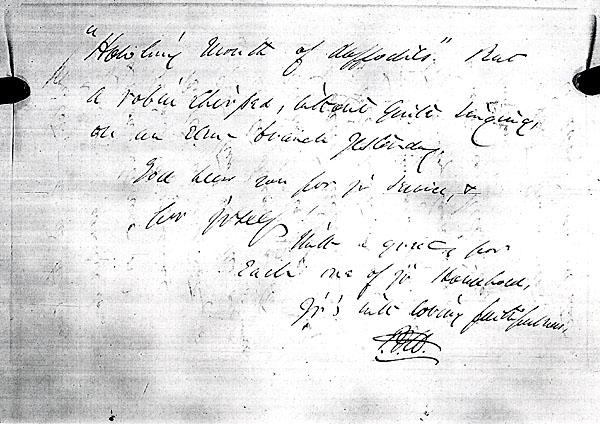 "Howling Month of daffodils." But
a robin chirped, without quite singing,
on an elm branch yesterday.
God bless you for yr service, &
for yrself
With a for
Each one of yr Household,
Yrs with loving faithfulness,